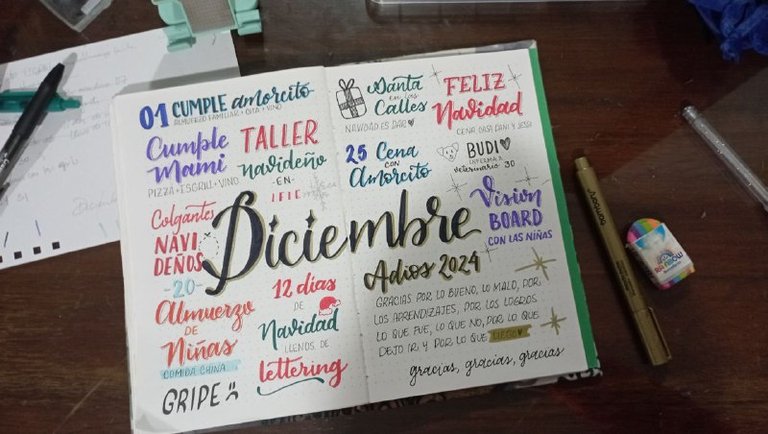 01 CUMPLE amorcito
ALMUERZO FAMILIAR + CITA + VINO
Cumple
Mami
PIZZA + ESGRILL + VINO
TALLER
navideño
- EN -
Colgantes
NAVI
DEÑOS
- 20 -
Almuerzo
DE
Niñas
COMIDA CHINA
GRIPE
12 días
DE
Navidad
LLENOS DE
lettering
Diciembre
Santa
en las
Calles
NAVIDAD ES DAR
FELIZ
Navidad
CENA CASA DANI Y JESSI
25 Cena
CON
Amorcito
BUDI
ENFERMITA
Veterinario 30
Vision
BOARD
CON LAS NIÑAS
Adios 2024
GRACIAS POR LO BUENO, LO MALO, POR
LOS APRENDIZAJES, POR LOS LOGROS
LO QUE FUE, LO QUE NO, POR LO QUE
DEJO IR Y POR LO QUE LLEGO
gracias, gracias, gracias
RAINBOW